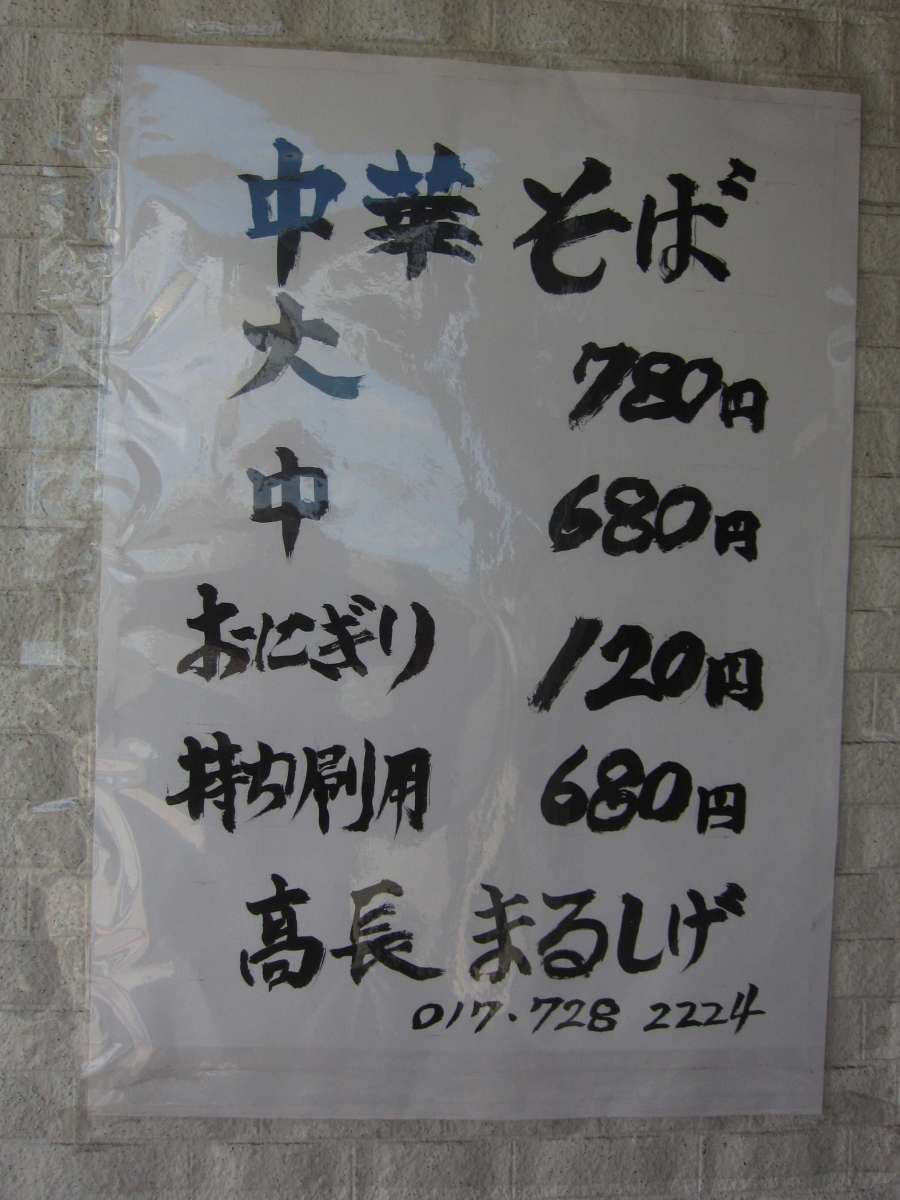 中華そば
大 780円
中 680円
おにぎり 120円
持ち刷用 680円
高長 まるしげ
017.728 2224